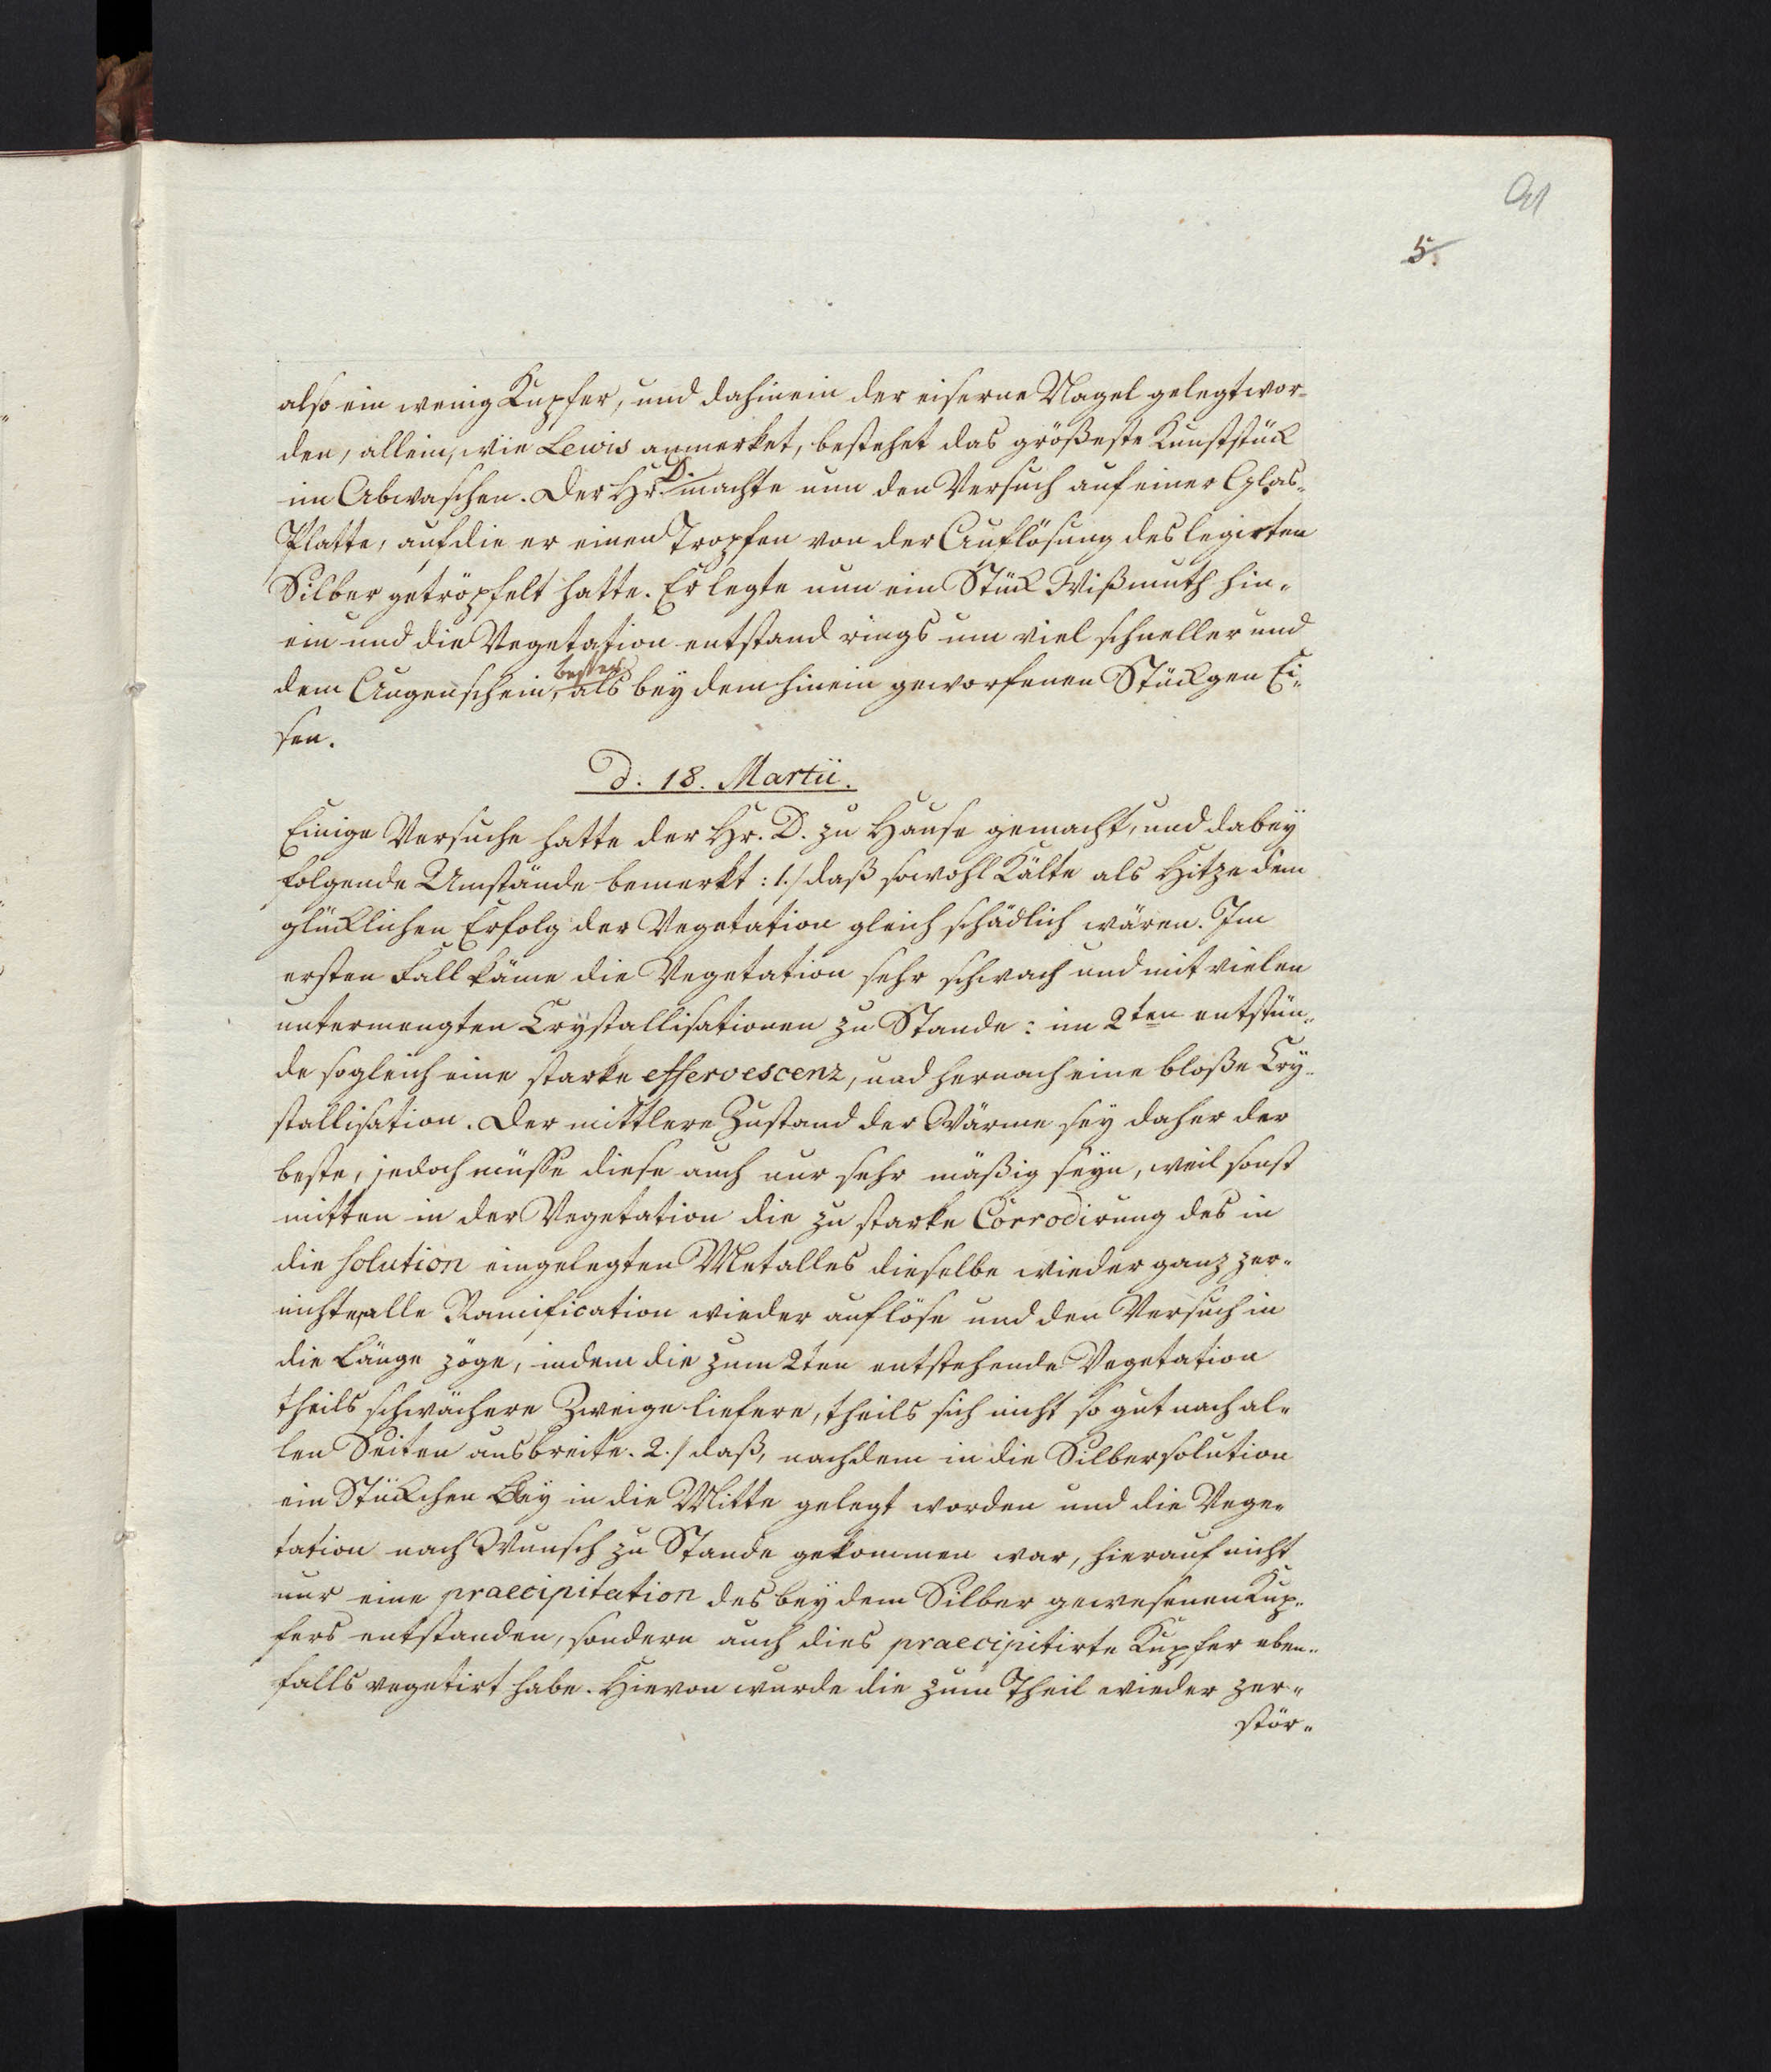 91
5.
also ein wenig Kupfer, und dahinein der eiserne Nagel gelegt wor-
den, allein, wie Lewis anmerket, bestehet das größeste Kunststück
im Abwaschen. Der Hr. D. machte nun den Versuch auf einer Glas-
Platte, auf die er einen Tropfen von der Auflösung des legirten
Silber getröpfelt hatte. Er legte nun ein Stück Wißmuth hin-
ein und die Vegetation entstand rings um viel schneller und
besser
dem Augenschein, als bey dem hinein geworfenen Stückgen Ei-
sen.
d. 18. Martii.
Einige Versuche hatte der Hr. D. zu Hause gemacht, und dabey
folgende Umstände bemerkt: 1./ daß sowohl Kälte als Hitze dem
glücklichen Erfolg der Vegetation gleich schädlich wären. Im
ersten Fall käme die Vegetation sehr schwach und mit vielen
untermengten Crystallisationen zu Stande: im 2ten entstün-
de sogleich eine starke effervescenz, und hernach eine bloße Cry-
stallisation. Der mittlere Zustand der Wärme sey daher der
beste, jedoch müsse diese auch nur sehr mäßig seyn, weil sonst
mitten in der Vegetation die zu starke Corrodirung des in
die solution eingelegten Metalles dieselbe wieder ganz zer-
nichte, alle Ramification wieder auflöse und den Versuch in
die Länge zöge, indem die zum 2ten entstehende Vegetation
theils schwächere Zweige liefere, theils sich nicht so gut nach al-
len Seiten ausbreite. 2./ daß, nachdem in die Silbersolution
ein Stückchen Bley in die Mitte gelegt worden und die Vege-
tation nach Wunsch zu Stande gekommen war, hierauf nicht
nur eine praecipitation des bey dem Silber gewesenen Kup-
fers entstanden, sondern auch dies praecipitirte Kupfer eben-
falls vegetirt habe. Hievon wurde die zum Theil wieder zer-
stör-